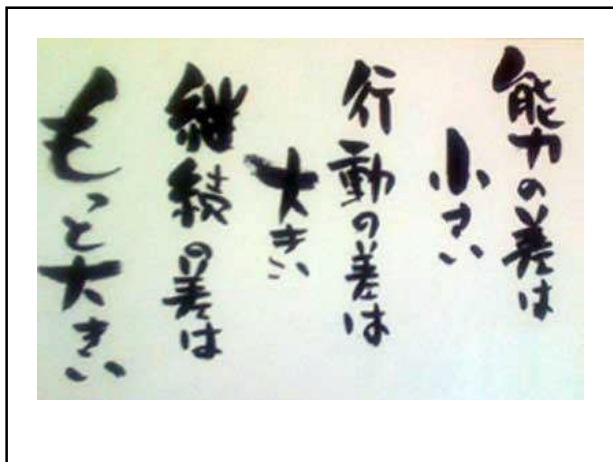 能力の差は
小さい
行動の差は
大きい
継続の差は
もっと大きい